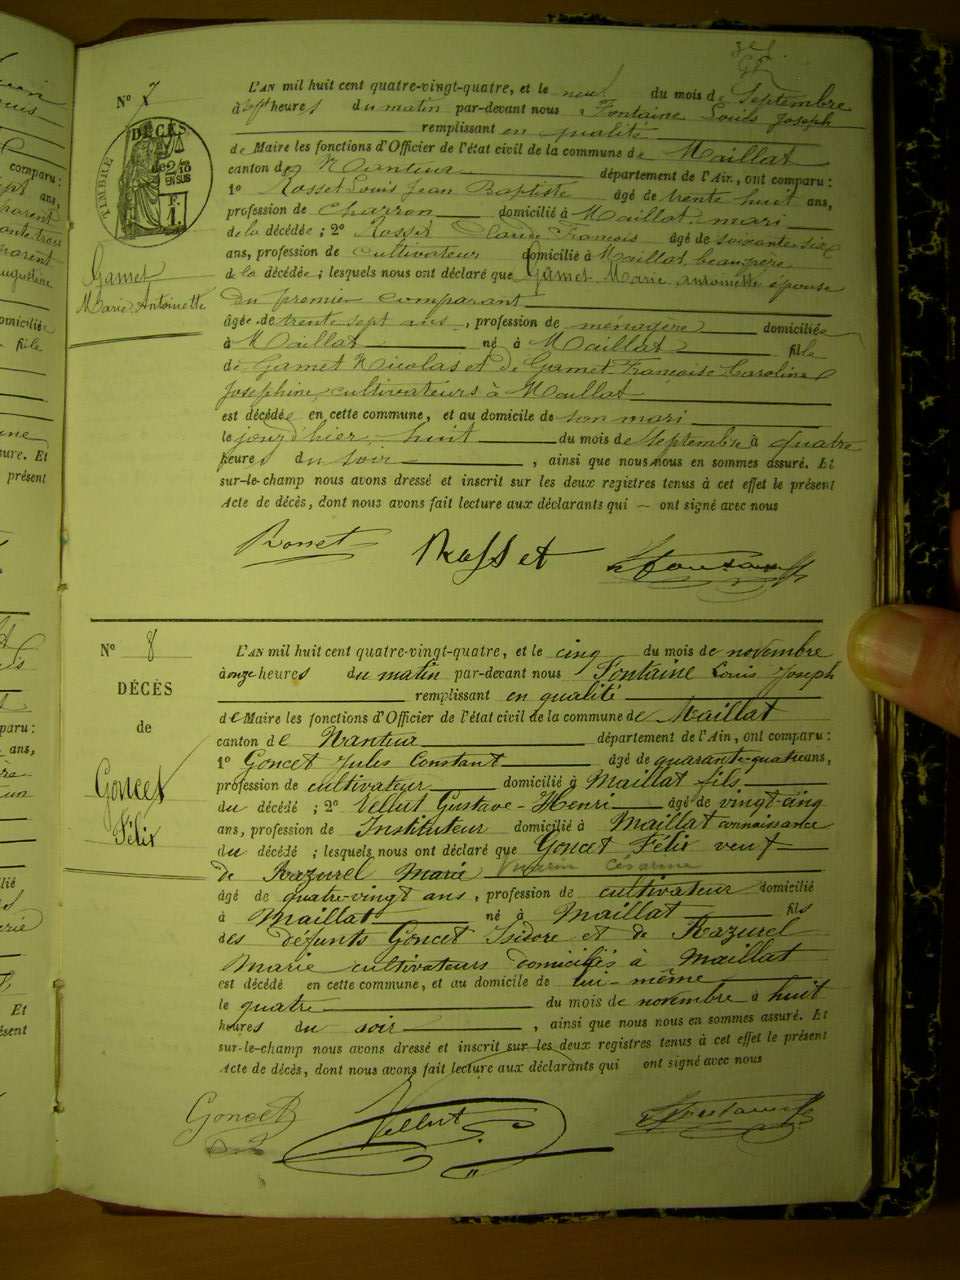 N° 7
TIMBRE
DÉCÈS
de 2/10
EN SUS
F.
1.
Gamet
Marie Antoinette
L'AN mil huit cent quatre-vingt-quatre, et le neuf du mois de Septembre
à sept heures du matin par-devant nous Fontaine Louis Joseph
remplissant en qualité
de Maire les fonctions d'Officier de l'état civil de la commune de Maillat
canton de Nantua département de l'Ain, ont comparu :
1° Rosset Louis Jean Baptiste âgé de trente huit ans,
profession de Charron domicilié à Maillat mari
de la décédée ; 2° Rosset Claude François âgé de soixante six
ans, profession de cultivateur domicilié à Maillat beau père
de la décédée ; lesquels nous ont déclaré que Gamet Marie Antoinette épouse
du premier comparant
âgée de trente sept ans , profession de ménagère domiciliée
à Maillat né à Maillat fille
de Gamet Nicolas et de Gamet Françoise Caroline
Joséphine cultivateurs à Maillat
est décédée en cette commune, et au domicile de son mari
le jourd'hier, huit du mois de Septembre à quatre
heures du soir , ainsi que nous nous en sommes assuré. Et
sur-le-champ nous avons dressé et inscrit sur les deux registres tenus à cet effet le présent
Acte de décès, dont nous avons fait lecture aux déclarants qui — ont signé avec nous
Rosset Rosset Fontaine
N° 8
DÉCÈS
de
Goncet
Félix
L'AN mil huit cent quatre-vingt-quatre, et le cinq du mois de novembre
à onze heures du matin par-devant nous Fontaine Louis Joseph
remplissant en qualité
de Maire les fonctions d'Officier de l'état civil de la commune de Maillat
canton de Nantua département de l'Ain, ont comparu :
1° Goncet Jules Constant âgé de quarante-quatre ans,
profession de cultivateur domicilié à Maillat fils
du décédé ; 2° Vellut Gustave-Henri âgé de vingt-cinq
ans, profession de Instituteur domicilié à Maillat connaissance
du décédé ; lesquels nous ont déclaré que Goncet Félix veuf
de Razurel Marie Césarine
âgé de quatre-vingt ans , profession de cultivateur domicilié
à Maillat né à Maillat fils
des défunts Goncet Isidore et de Razurel
Marie cultivateurs domiciliés à Maillat
est décédé en cette commune, et au domicile de lui-même
le quatre du mois de novembre à huit
heures du soir , ainsi que nous nous en sommes assuré. Et
sur-le-champ nous avons dressé et inscrit sur les deux registres tenus à cet effet le présent
Acte de décès, dont nous avons fait lecture aux déclarants qui ont signé avec nous
Goncet Vellut Fontaine